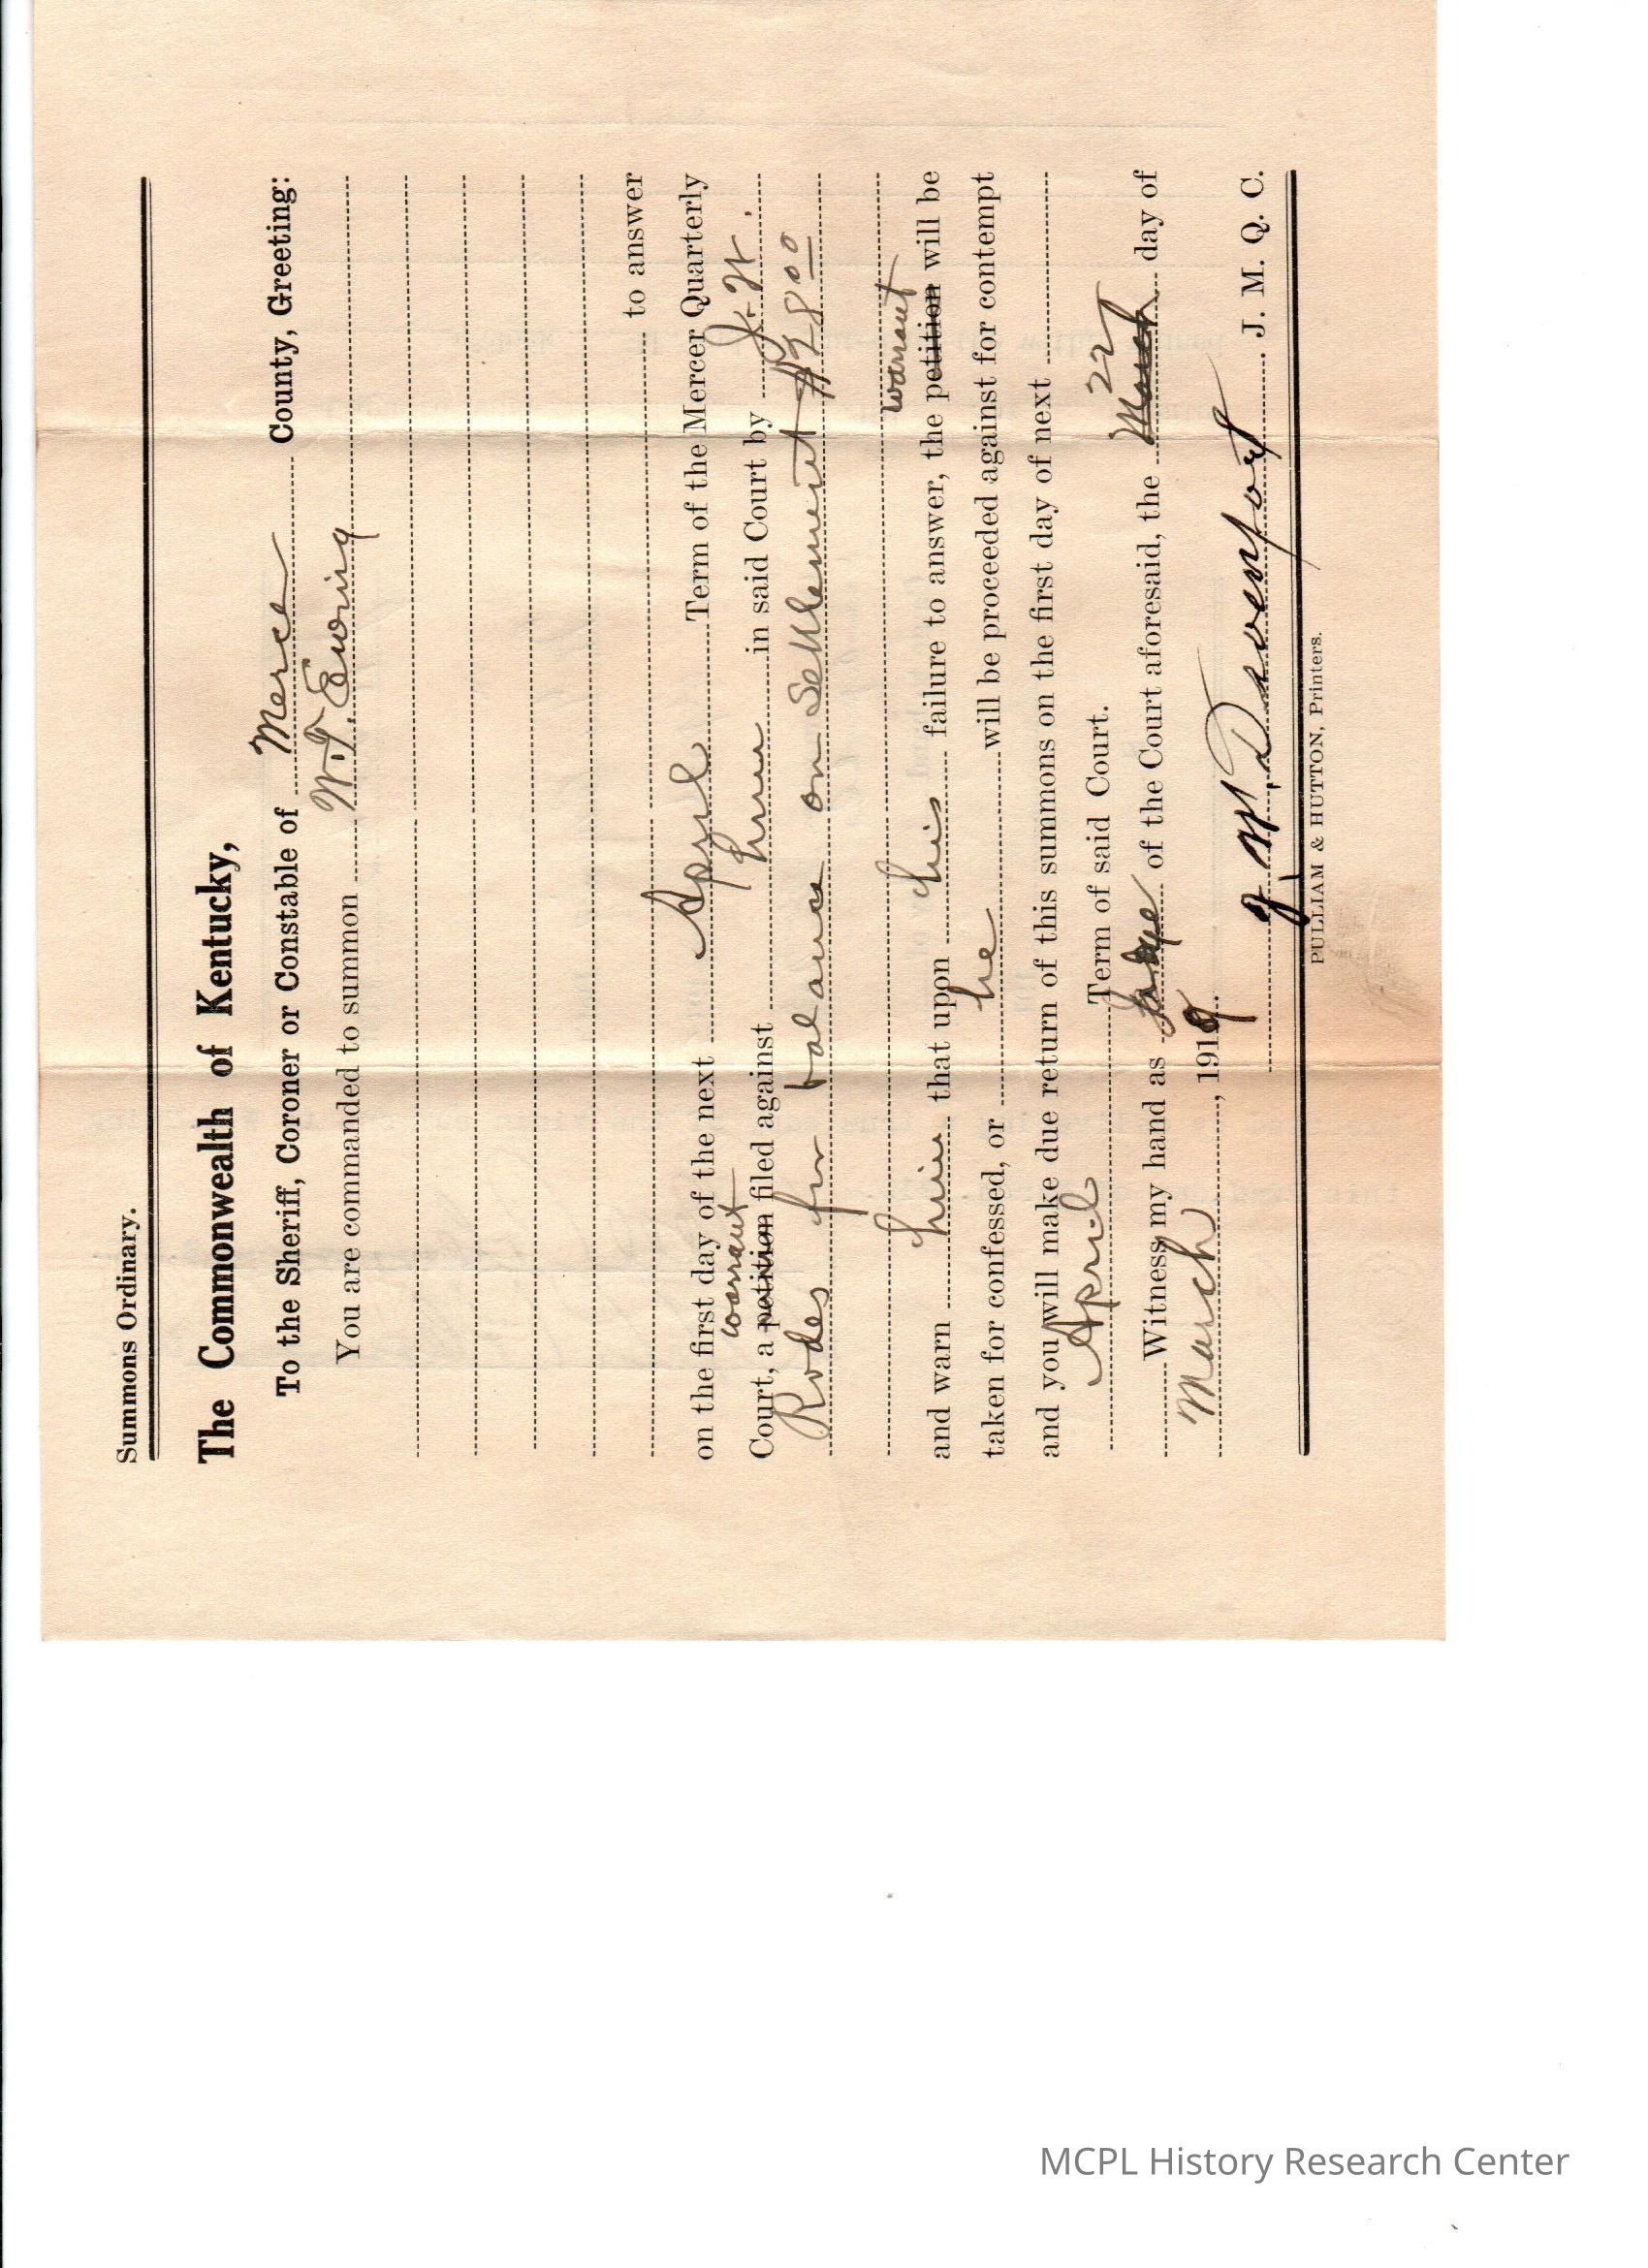 Summons Ordinary.
The Commonwealth of Kentucky,
To the Sheriff, Coroner or Constable of Mercer County, Greeting:
You are commanded to summon W. T. Ewing
to answer
on the first day of the next April Term of the Mercer Quarterly
warrant
Court, a petition filed against him in said Court by J. W.
Rodes for balance on settlement $28 00
warrant
and warn him that upon his failure to answer, the petition will be
taken for confessed, or he will be proceeded against for contempt
and you will make due return of this summons on the first day of next
April Term of said Court.
22
Witness my hand as Judge of the Court aforesaid, the March day of
March, 1919.
J. W. Davenport J. M. Q. C.
PULLIAM & HUTTON, Printers.
MCPL History Research Center